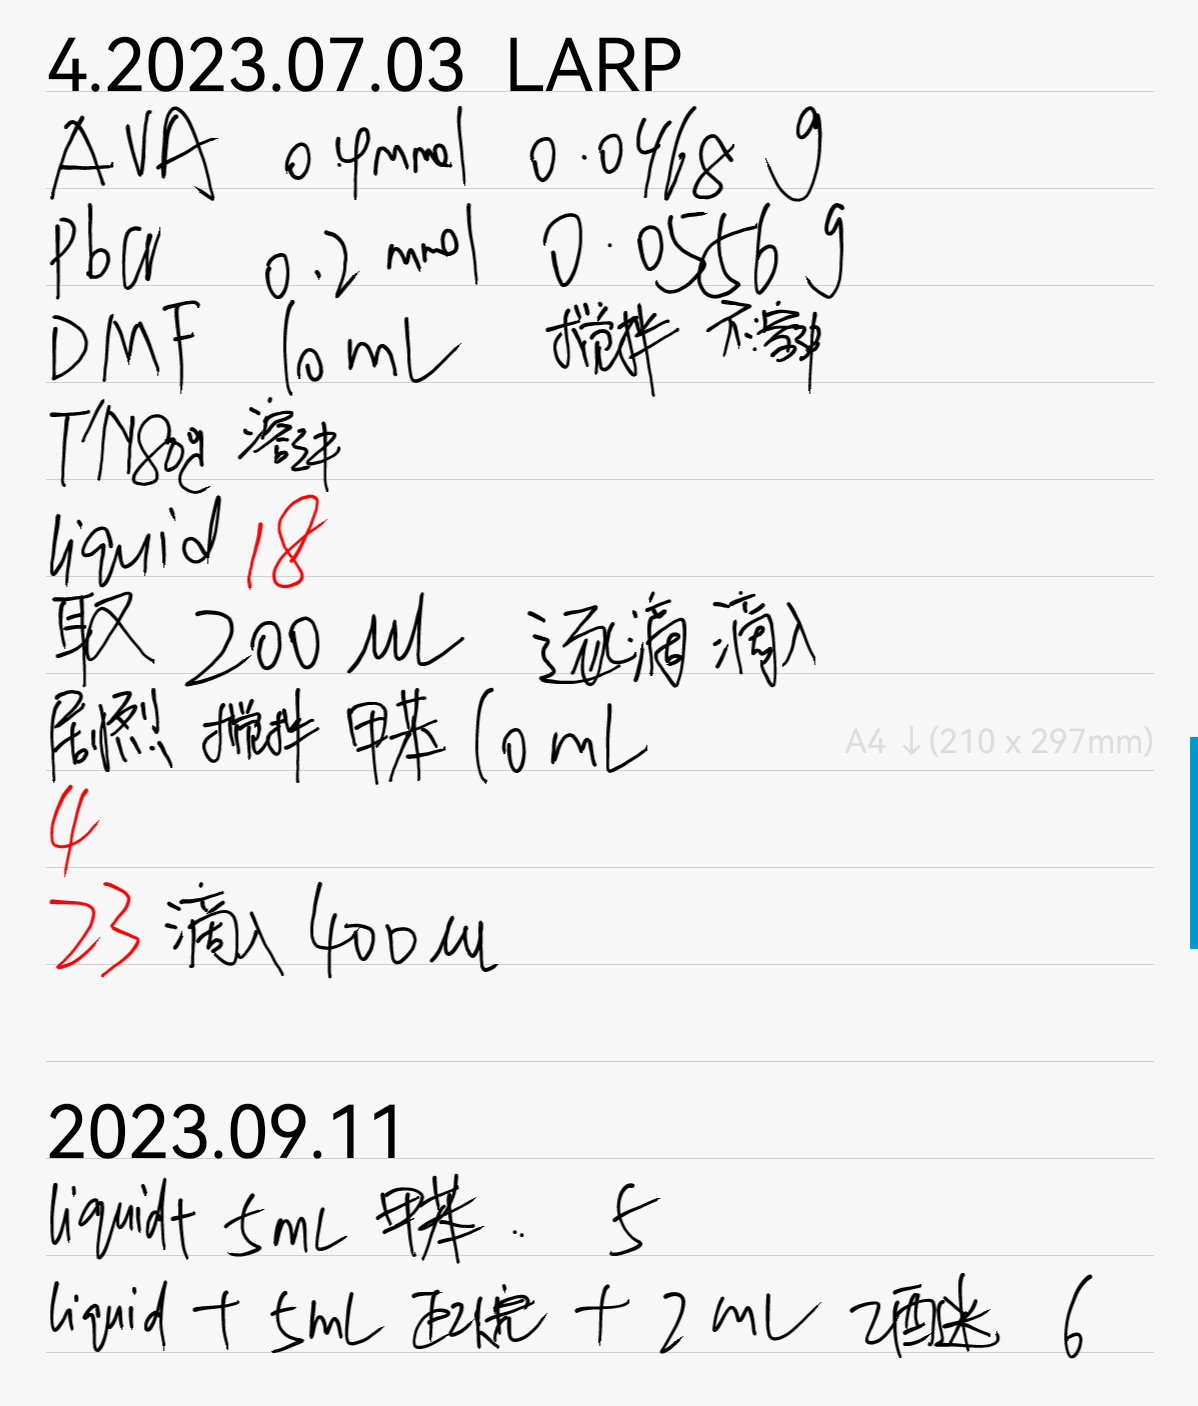 4.2023.07.03 LARP
AVA 0.4mmol 0.0468 g
PbCl 0.2 mmol 0.0556 g
DMF 10 mL 搅拌 不溶解
溶解
liquid 18
取 200 μL 逐滴 滴入
剧烈 搅拌 甲苯 10 mL
A4 ↓(210 x 297mm)
4
23 滴入 400 μL
2023.09.11
liquid+ 5mL 甲苯 .. 5
liquid + 5mL 正己烷 + 2 mL 乙醚 6